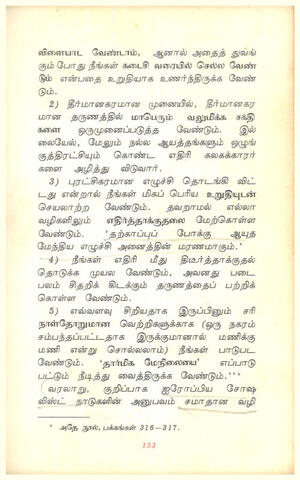 விளையாட வேண்டாம், ஆனால் அதைத் துவங்
கும்போது நீங்கள் கடைசி வரையில் செல்ல வேண்
டும் என்பதை உறுதியாக உணர்ந்திருக்க வேண்
டும்.
2) தீர்மானகரமான முனையில், தீர்மானகர
மான தருணத்தில் மாபெரும் வலுமிக்க சக்தி
களை ஒருமுனைப்படுத்த வேண்டும். இல்
லையேல், மேலும் நல்ல ஆயத்தங்களும் ஒழுங்
குத்திரட்சியும் கொண்ட எதிரி கலகக்காரர்
களை அழித்து விடுவார்.
3) புரட்சிகரமான எழுச்சி தொடங்கி விட்
டது என்றால் நீங்கள் மிகப் பெரிய உறுதியுடன்
செயலாற்ற வேண்டும். தவறாமல் எல்லா
வழிகளிலும் எதிர்த்தாக்குதலை மேற்கொள்ள
வேண்டும். 'தற்காப்புப் போக்கு ஆயுத
மேந்திய எழுச்சி அனைத்தின் மரணமாகும்.'
4) நீங்கள் எதிரி மீது திடீர்த்தாக்குதல்
தொடுக்க முயல வேண்டும், அவனது படை
பலம் சிதறிக் கிடக்கும் தருணத்தைப் பற்றிக்
கொள்ள வேண்டும்.
5) எவ்வளவு சிறியதாக இருப்பினும் சரி
நாள்தோறுமான வெற்றிகளுக்காக (ஒரு நகரம்
சம்பந்தப்பட்டதாக இருக்குமானால் மணிக்கு
மணி என்று சொல்லலாம்) நீங்கள் பாடுபட
வேண்டும். 'தார்மிக மேநிலையை' எப்பாடு
பட்டும் நீடித்து வைத்திருக்க வேண்டும்.''*
வரலாறு, குறிப்பாக ஐரோப்பிய சோஷ
லிஸ்ட் நாடுகளின் அனுபவம் சமாதான வழி
* அதே நூல், பக்கங்கள் 316—317.
153